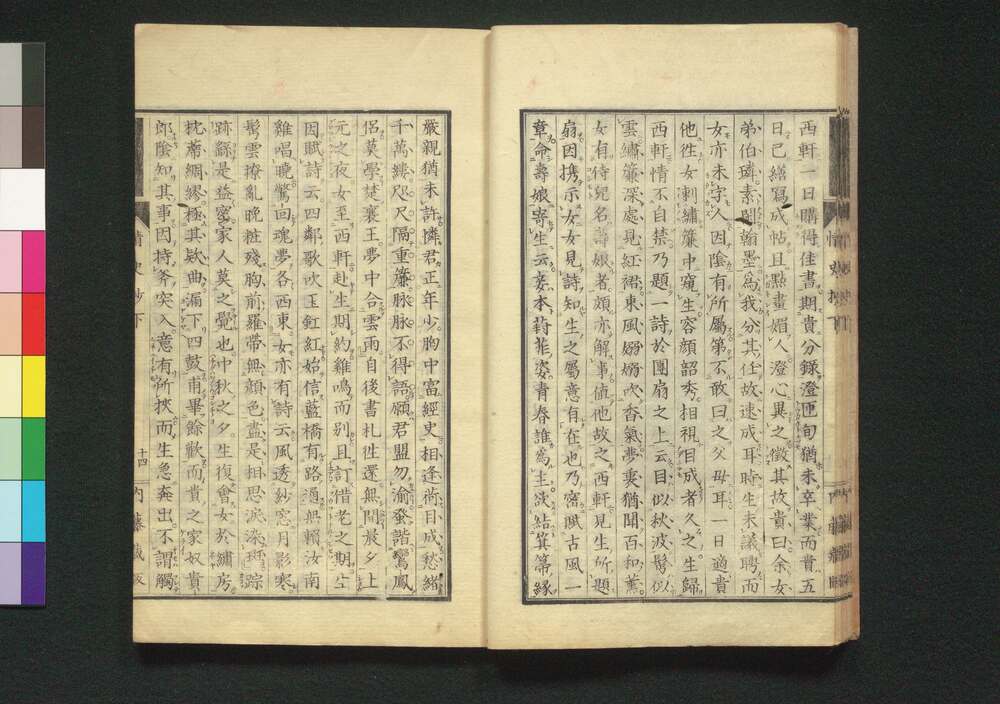 西軒一日購得佳書期貴分錄澄匝旬猶未卒業而貴五
日已繕寫成帖且點畫媚人澄心異之徵其故貴曰余女
弟伯璘素閑翰墨爲我分其任故速成耳時生未議聘而
女亦未字人因陰有所屬第不敢白之父母耳一日適貴
他徃女刺繡簾中窺生容顔韶秀相視目成者久之生歸
西軒情不自禁乃題一詩於團扇之上云目似秋波鬢似
雲繡簾深處見紅裙東風嫋嫋吹香氣夢裏猶聞百和薰
女有侍兒名壽娘者頗亦解事値他故之西軒見生所題
扇因携示女女見詩知生之屬意有在也乃寤賦古風一
章命壽娘寄生云妾本葑菲姿青春誰爲主欲結箕箒緣
嚴親猶未許憐君正年少胸中富經史相逢荷目成愁緒
千萬縷咫尺隔重簾脉脉不得語願君盟勿渝發諧鸞鳳
侶莫學楚襄王夢中合雲雨自後書札徃還無間最夕上
元之夜女至西軒赴生期約雞鳴而别且訂偕老之期生
因賦詩云四鄰歌吹玉釭紅始信藍橋有路通無賴汝南
雞唱曉驚回魂夢各西東女亦有詩云風透紗窓月影寒
鬢雲撩亂晚粧殘胸前羅帶無顔色盡是相思淚染斑踪
跡繇是益密家人莫之覺也中秋之夕生復會女於繡房
枕席綢繆極其欵曲漏下四鼓甫畢餘歡而貴之家奴貴
郎陰知其事因持斧突入意有所挾而生急奔出不謂觸
情史抄下
十四
内藤藏板